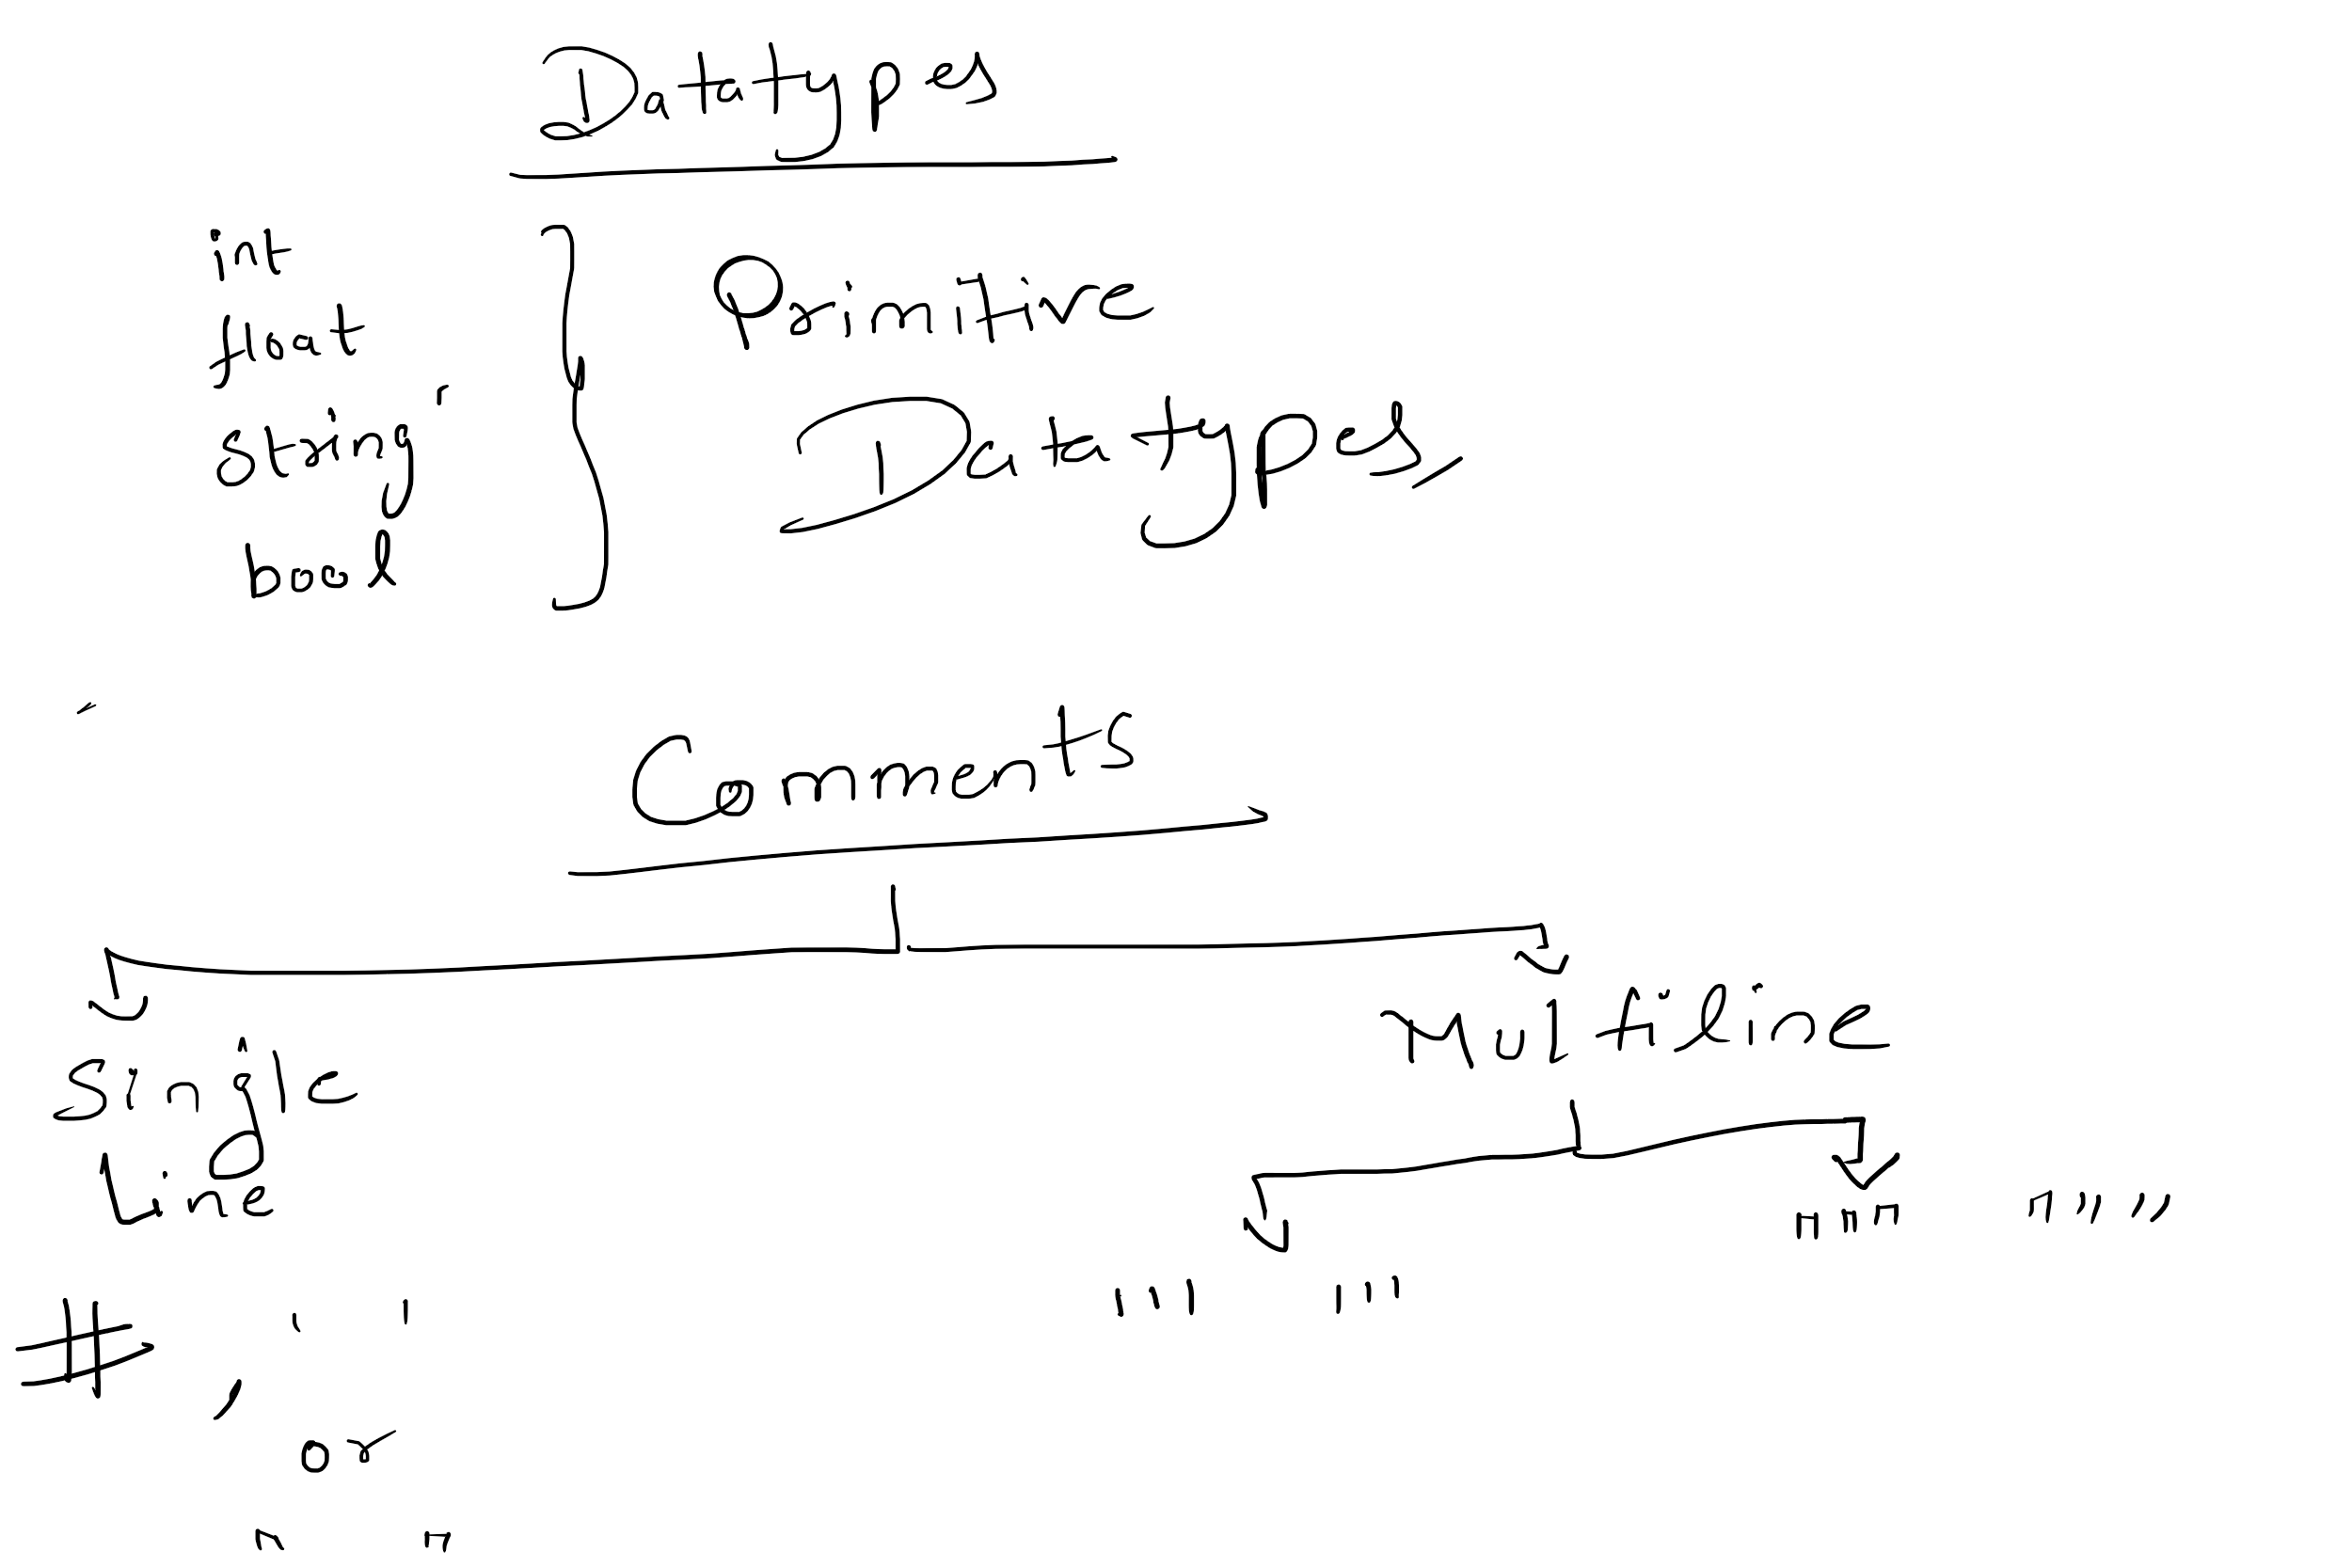 Datatypes
int
float
string
bool
Primitive
Datatypes
Comments
Single
Line
Multiline
''' '''
""" """
# , ' '
or
" "